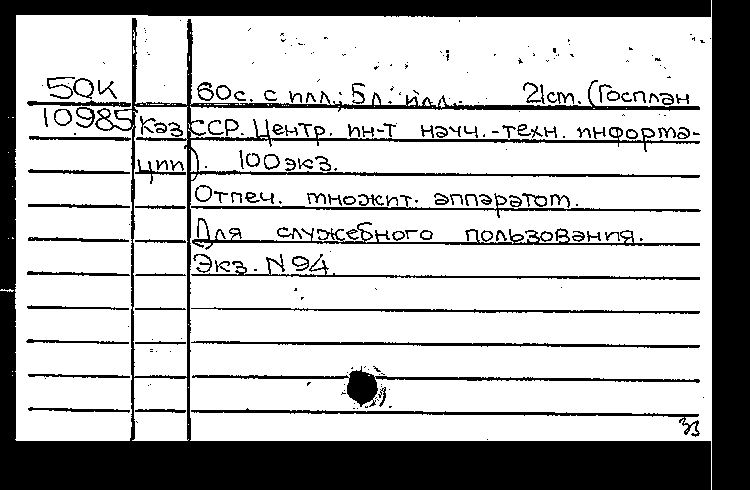 50К 60с. с илл.; 5л. илл. 21см. (Госплан
10985 Каз ССР. Центр. ин-т науч.-техн. информа-
ции). 100экз.
Отпеч. множит. аппаратом.
Для служебного пользования.
Экз. N 94.